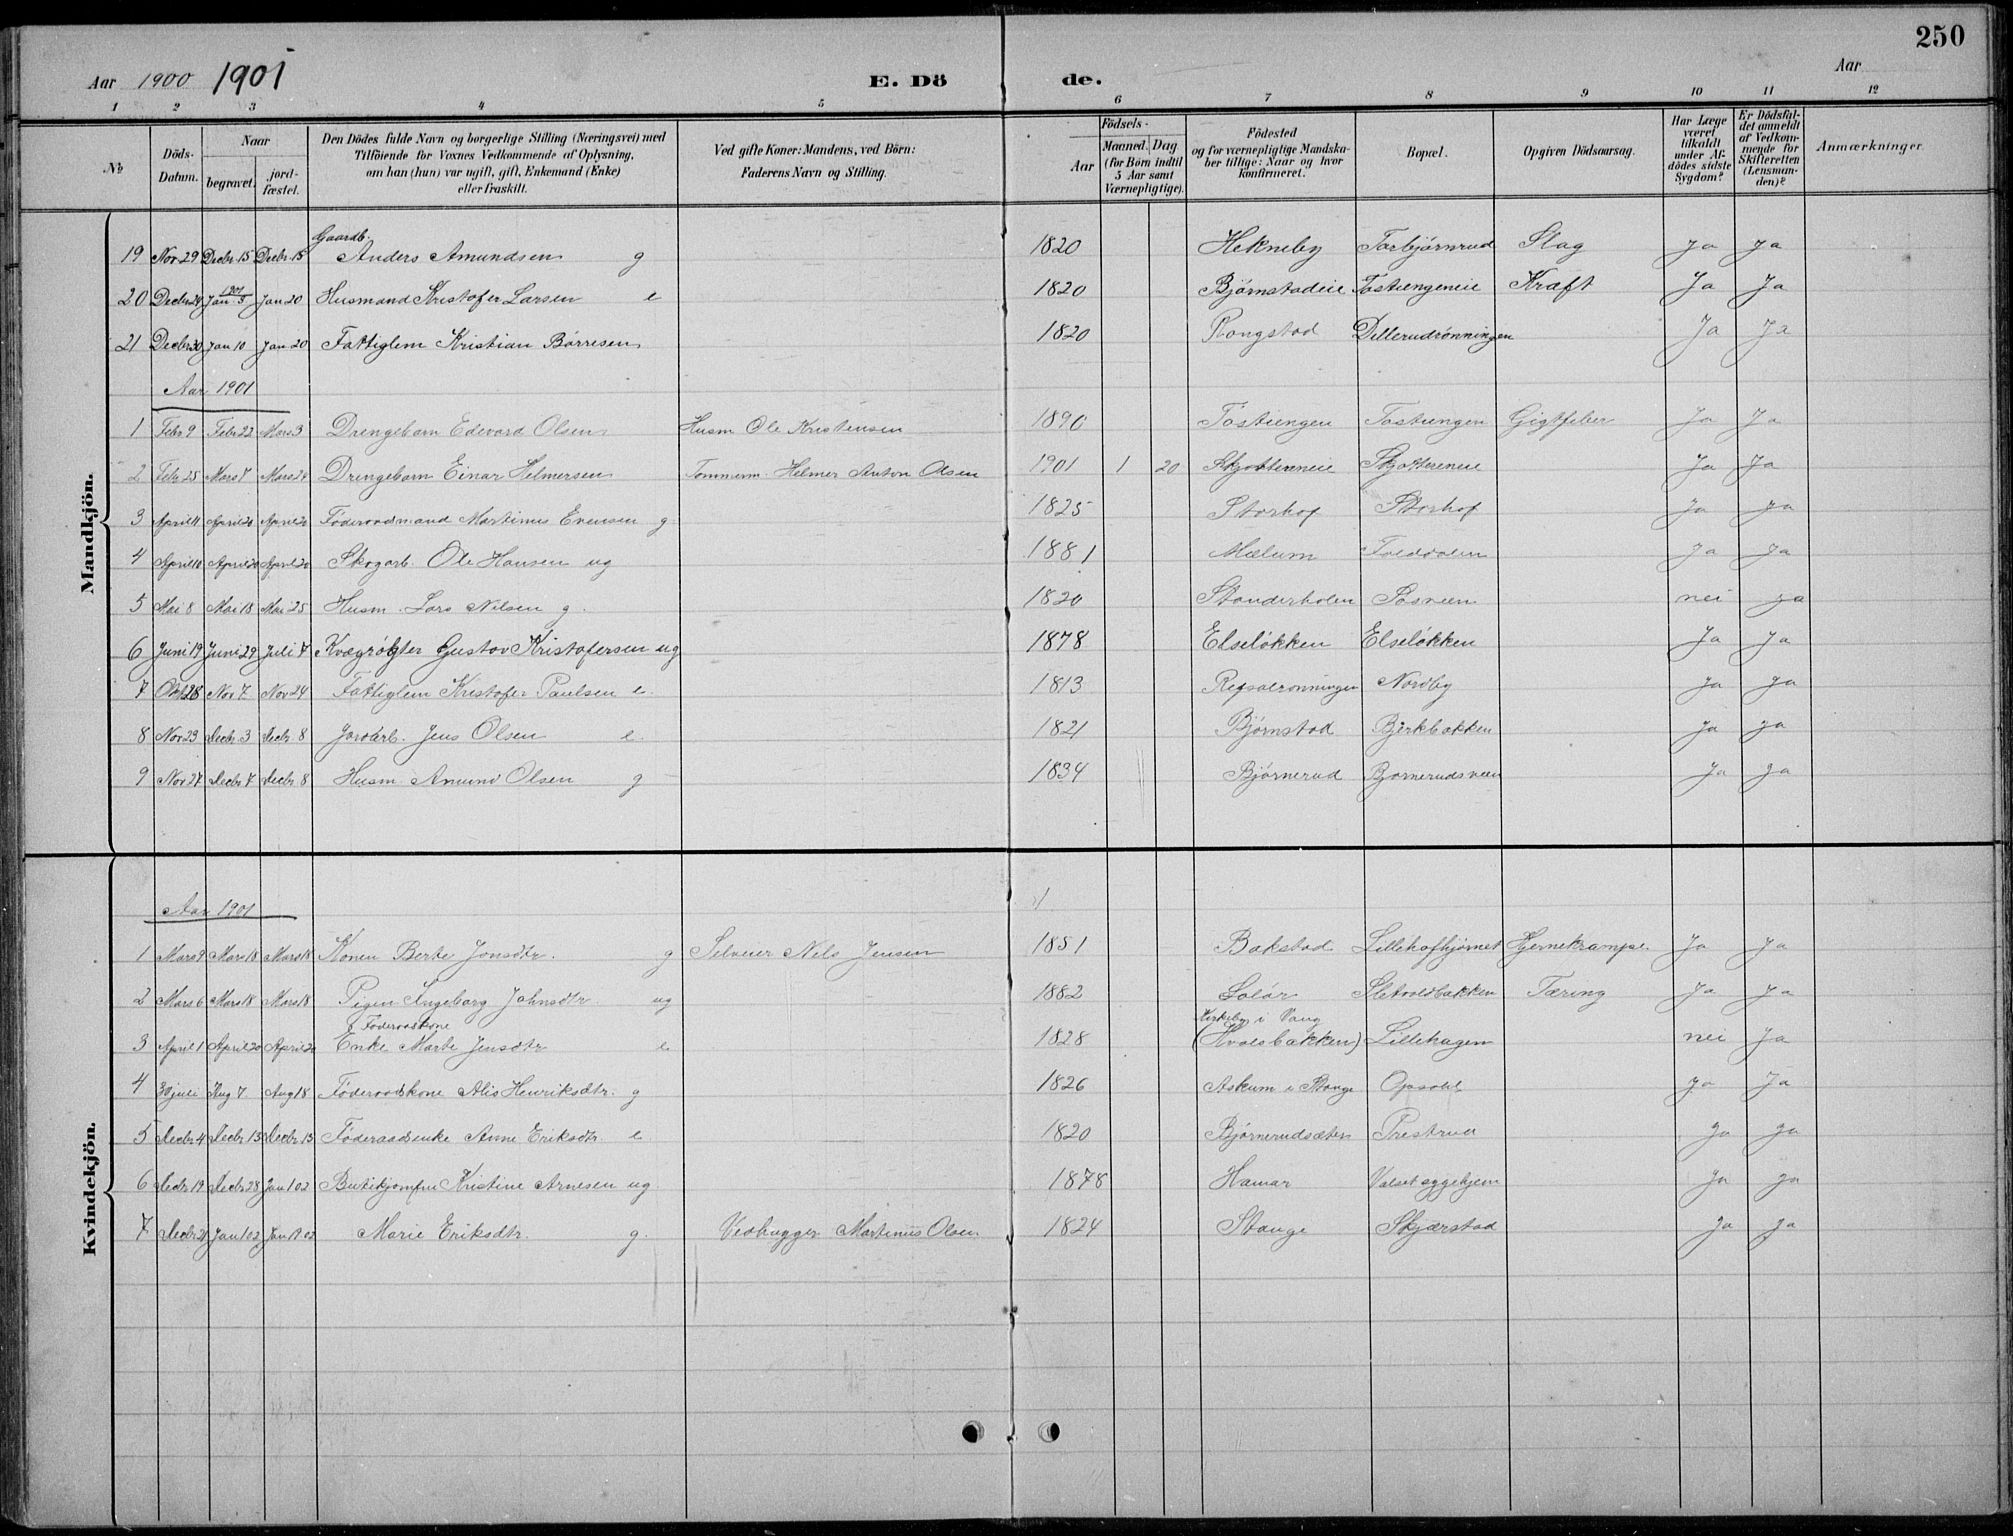 250
Aar 1900 1901 E. Döde. Aar
1 2 3 4 5 6 7 8 9 10 11 12
No
Döds-Datum.
Naar
begravet. jord-fæstet.
Den Dödes fulde Navn og borgerlige Stilling (Næringsvei) med
Tilföiende for Voxnes Vedkommende af Oplysning,
om han (hun) var ugift, gift, Enkemand (Enke)
eller fraskilt.
Ved gifte Koner: Mandens, ved Börn:
Faderens Navn og Stilling.
Födsels-
Aar
Maaned. Dag
(for Börn indtil
5 Aar samt
Værnepligtige).
Födested
og for værnepligtige Mandska-
ber tillige: Naar og hvor
konfirmeret.
Bopæl.
Opgiven Dödsaarsag.
Har Læge
været
tilkaldt
under Af-
dödes sidste
Sygdom?
Er Dödsfal-
det anmeldt
af Vedkom-
mende for
Skifteretten
(Lensman-
den)?
Anmærkninger.
Mandkjön.
19 Nov 29 Decbr 15 Decbr 15 Gaardb. Anders Amundsen g 1820 Hekneby Torbjørnrud Slag Ja Ja
20 Decbr 24 1901 Jan 5 Jan 20 Husmand Kristofer Larsen e 1820 Bjørnstadeie Tostengeneie Kræft Ja Ja
21 Decbr 30 Jan 10 Jan 20 Fattiglem Kristian Børresen 1820 Rongstad Dillerudrønningen Ja Ja
Aar 1901
1 Febr 9 Febr 22 Mars 3 Drengebarn Edevard Olsen Husm Ole Kristensen 1890 Tostengen Tostengen Gigtfeber Ja Ja
2 Febr 25 Mars 7 Mars 24 Drengebarn Einar Helmersen Tømmerm. Helmer Anton Olsen 1901 1 20 Skjøttereneie Skjøttereneie Ja Ja
3 April 11 April 20 April 20 Føderaadmand Martinus Evensen g 1825 Storhof Storhof Ja Ja
4 April 10 April 20 April 20 Skogarb. Ole Hansen ug 1881 Mælum Ja Ja
5 Mai 8 Mai 18 Mai 25 Husm. Lars Nilsen g. 1820 Sosveen nei ja
6 Juni 19 Juni 29 Juli 7 Kvægrøgter Gustav Kristofersen ug 1878 Elseløkken Elseløkken Ja Ja
7 Okt 28 Nov 7 Nov 24 Fattiglem Kristofer Paulsen e. 1813 Repsalrønningen Nordby Ja ja
8 Nov 23 Decbr. 3 Decbr 8 Jordarb. Jens Olsen e. 1821 Bjørnstad Bjerkbakken Ja ja
9 Nov 27 Decbr 7 Decbr 8 Husm Amund Olsen g 1834 Bjørnerud Bjørnerudsveen Ja ja
Kvindekjön.
Aar 1901
1 Mars 9 Mars 18 Mars 18 Konen Berte Jonsdtr. g Selveier Nils Jensen 1851 Bakstad Lillehofhjørnet Hjernekrampe. Ja Ja
2 Mars 6 Mars 18 Mars 18 Pigen Ingeborg Johnsdtr ug 1882 Solør Sletvoldbakken Tæring Ja Ja
3 April 1 April 20 April 20 Føderaadskone Enke Marte Jensdtr e 1828 Kirkeby i Vang (Kvalsbakken) Lillehagen nei Ja
4 30 juli Aug 7. Aug 18 Føderaadskone Alis Henriksdtr. g 1826 Askum i Stange Opsahl Ja Ja
5 Decbr 4 Decbr 13 Decbr 13 Føderaadsenke Anne Eriksdtr e 1820 Bjørnerudsæter Prestrud Ja ja
6 Decbr 19 Decbr 28 Jan 1 02 Butikjomfru Kristine Arnesen ug. 1878 Hamar Valset sygehjem Ja ja
7 Decbr 21 Jan 1 02 Jan 1 02 Marie Eriksdtr. g. Vedhugger Martinus Olsen 1824 Stange Skjærstad Ja ja